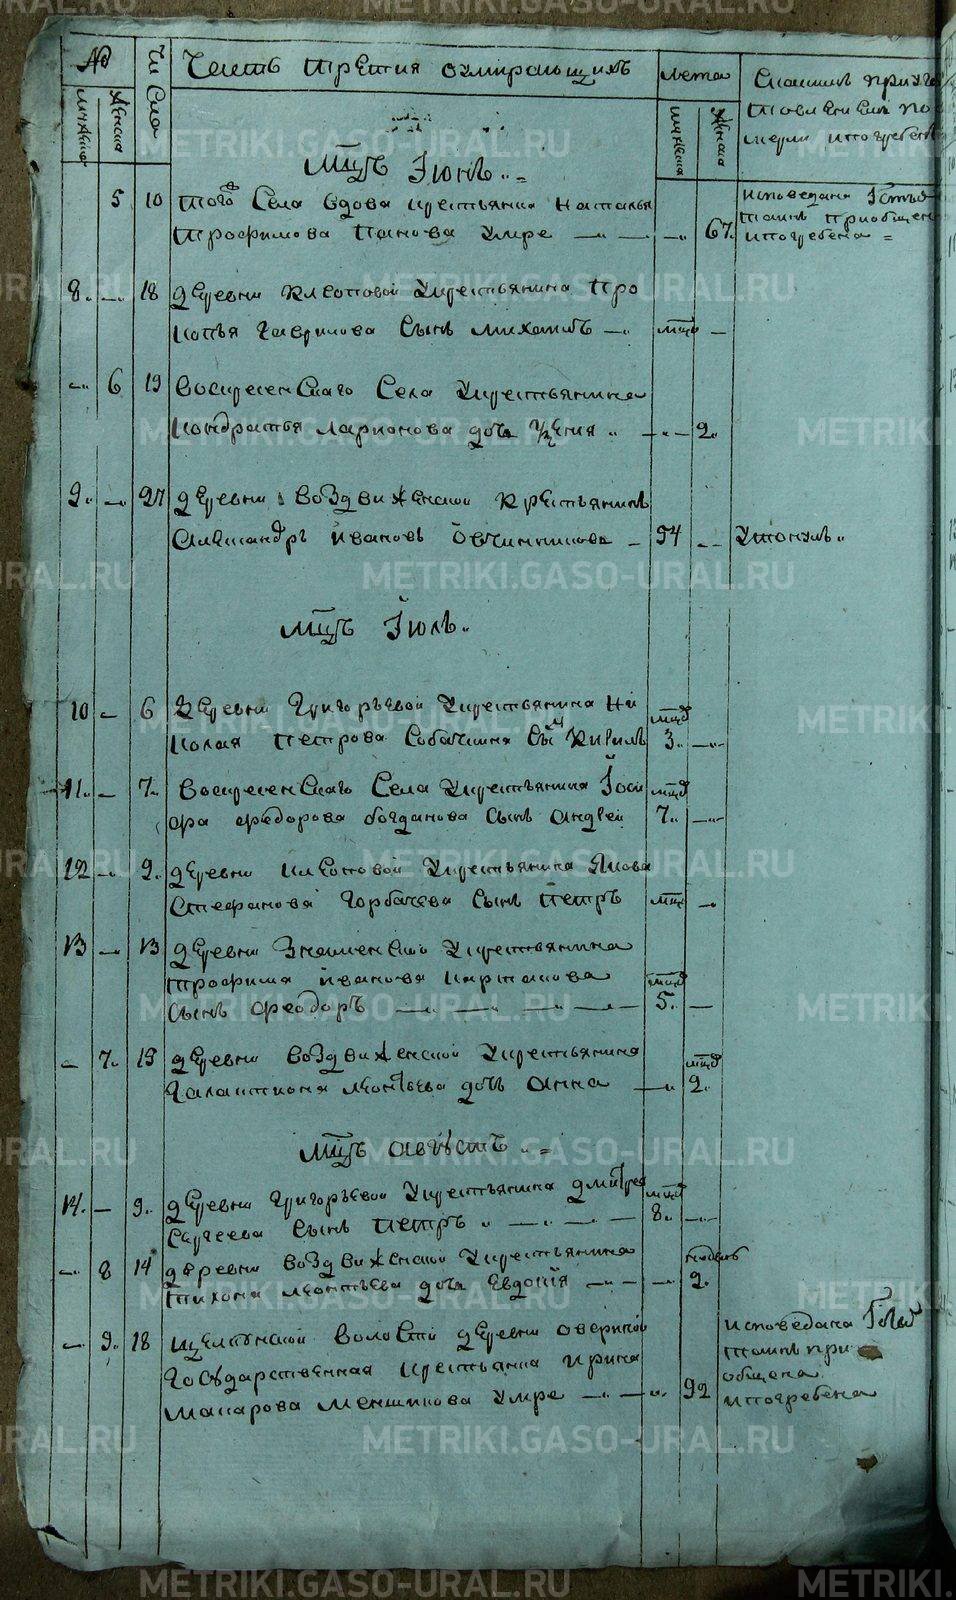 № Число Часть третия о умирающихъ Лета
мужеска женска мужеска женска
Мцъ Iюнь
5 10 того Села вдова крестьянка Наталья исповедана
Трофимова Панова Умре 67. приобщен
и погребена
8. 18 деревни Клеоповой Укрестьянина Про
копья Гаврилова Сынъ Михаилъ мцъ
6 19 Воскресенскаго Села Укрестьянина
Кондратья Ларионова дочь 2.
9. 27 деревни Воздвиженской Крестьянинъ
Александръ Ивановъ Овчинникова 54 Утонулъ
Мцъ Iюль.
10 6 деревни Григорьевой Укрестьянина Ни
колая Петрова Собакина Сынъ Кирилъ 3.
11. 7. Воскресенскаго Села Укрестьянина
Федорова Богданова Сынъ Андрей 7.
12 9. деревни Клеоповой Укрестьянина Якова
Стефанова Горбачева Сынъ Петръ
13 13 деревни Знаменской Укрестьянина
Трофима Иванова
Сынъ Феодоръ 5.
7. 15 деревни Воздвиженской Укрестьянина
Галактиона Леонтьева дочь Анна 2.
Мцъ Августъ
14. 9. деревни Григорьевой Укрестьянина Дмитрея
Сергеева Сынъ Петръ 8.
8 14 деревни Воздвиженской Укрестьянина
Тихона Леонтьева дочь Евдокiя 2.
9. 18 Щелкунской Волости деревни исповедана
Государственная крестьянка Ирина при
общена
Макарова Меншикова Умре 92 и погребена
METRIKI.GASO-URAL.RU